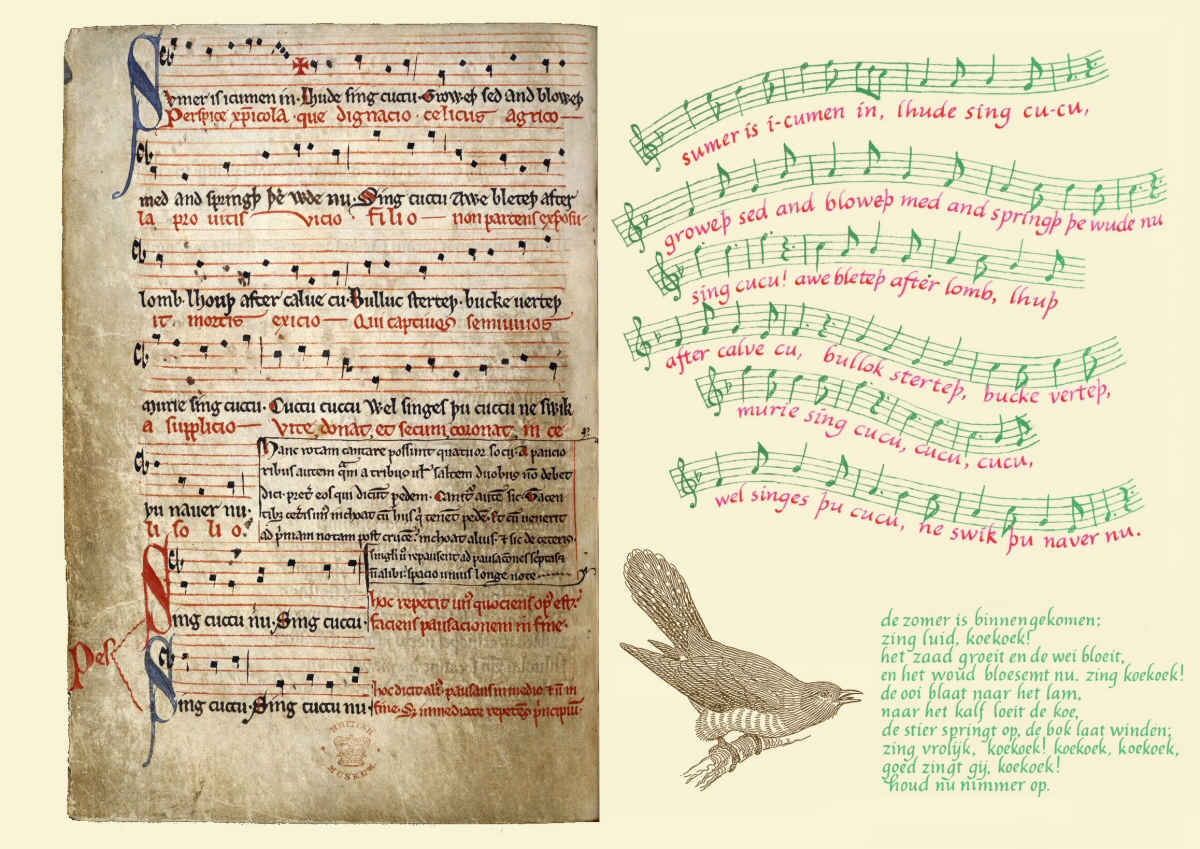 Sumer is icumen in· Lhude sing cuccu· Groweþ sed and bloweþ
Perspice xp̅icola· que dignacio· celicus agrico—
med and springþ þe wde nu· Sing cuccu Awe bleteþ after
la pro uitis vicio filio— non parcens exposu-
lomb· lhouþ after calue cu· Bulluc sterteþ· bucke uerteþ
it mortis exicio— Qui captiuos semiuiuos
murie sing cuccu· Cuccu cuccu Wel singes þu cuccu ne swik
a supplicio— Vite donat, et secum coronat, in ce
þu nauer nu·
li so li o·
Hanc rotam cantare possunt quatuor socij· A pancio
ribus autem
a tribus
saltem duobus
debet
dici·
eos qui
pedem·
sic· Tacen
tibus
inchoat
tenet
uenerit
ad
notam post
inchoat alius·
sic de ceteris
singli
repausent ad pausacōnes scriptas
alibi· spacio unius longe note
Pes
Sing cuccu nu· Sing cuccu·
hoc repetit
quociens op̅ est·
faciens pausacionem in fine·
Sing cuccu· Sing cuccu nu·
hoc dicit
pausans in medio
in
fine· Sz immediate repetens principium·
BRITISH
MUSEUM
sumer is i-cumen in, lhude sing cu-cu,
groweþ sed and bloweþ med and springþ þe wude nu
sing cucu! awe bleteþ after lomb, lhuþ
after calve cu, bullok sterteþ, bucke verteþ,
murie sing cucu, cucu, cucu,
wel singes þu cucu, ne swik þu naver nu.
de zomer is binnengekomen;
zing luid, koekoek!
het zaad groeit en de wei bloeit,
en het woud bloesemt nu. zing koekoek!
de ooi blaat naar het lam,
naar het kalf loeit de koe,
de stier springt op, de bok laat winden;
zing vrolijk, koekoek! koekoek, koekoek,
goed zingt gij, koekoek!
houd nu nimmer op.